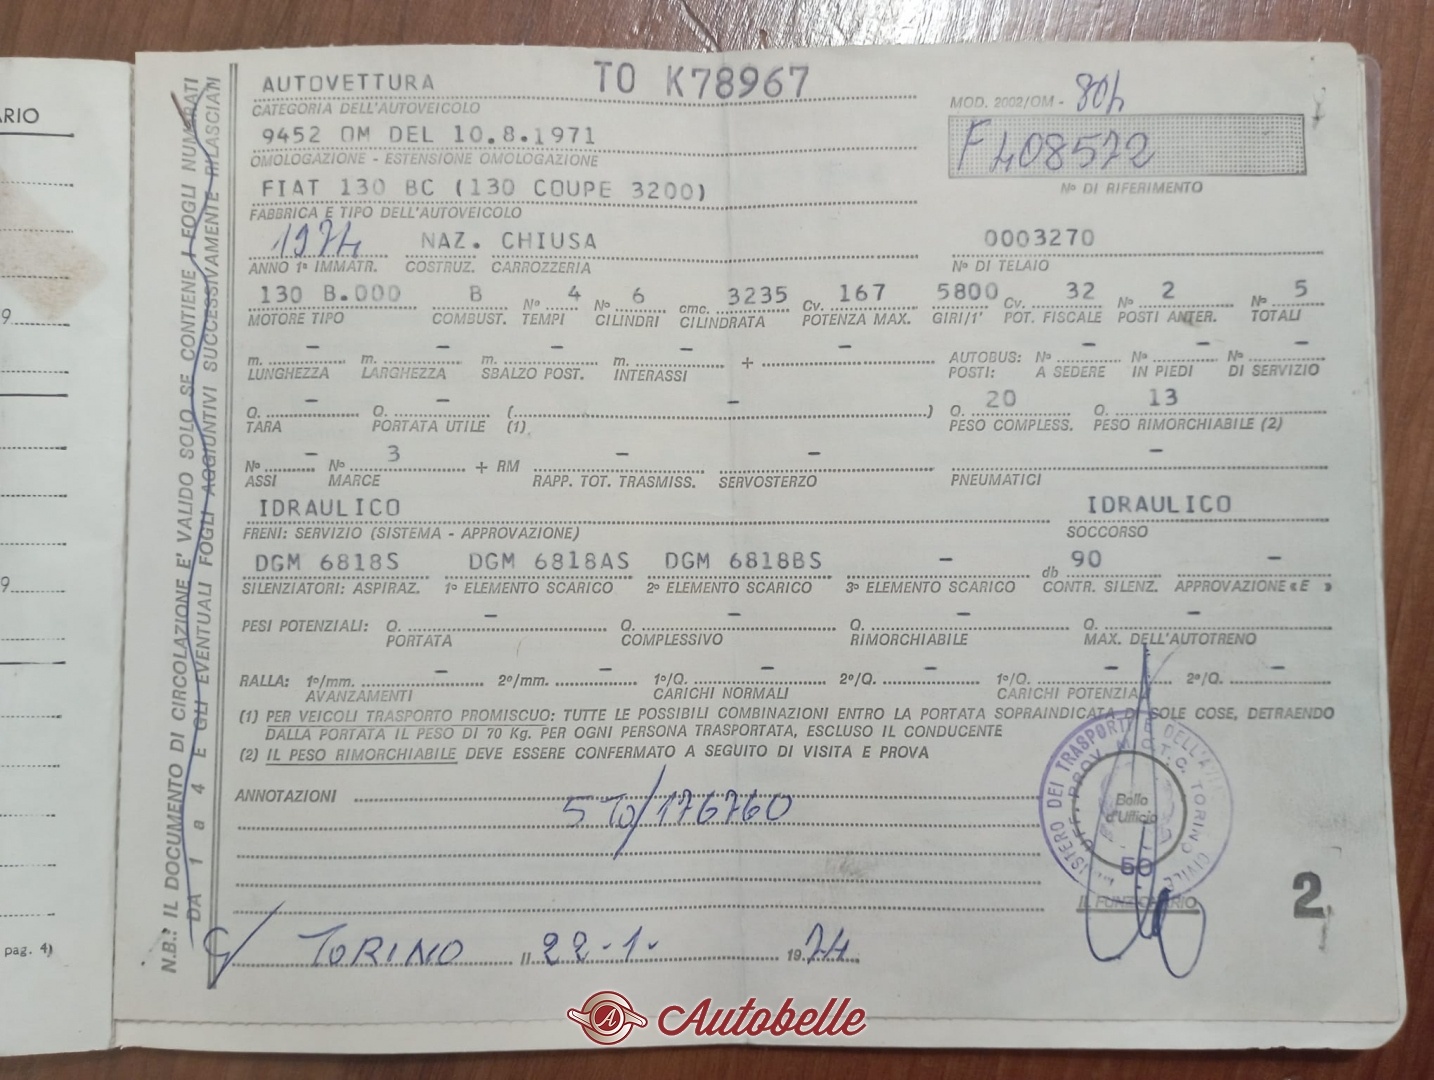 ARIO
9
9
pag. 4)
N.B.: IL DOCUMENTO DI CIRCOLAZIONE E' VALIDO SOLO SE CONTIENE I FOGLI NUMERATI
DA 1 a 4 E GLI EVENTUALI FOGLI AGGIUNTIVI SUCCESSIVAMENTE RILASCIATI
AUTOVETTURA TO K78967
CATEGORIA DELL'AUTOVEICOLO MOD. 2002/OM - 804
9452 OM DEL 10.8.1971 F408572
OMOLOGAZIONE - ESTENSIONE OMOLOGAZIONE Nº DI RIFERIMENTO
FIAT 130 BC (130 COUPE 3200)
FABBRICA E TIPO DELL'AUTOVEICOLO
1974 NAZ. CHIUSA 0003270
ANNO 1ª IMMATR. COSTRUZ. CARROZZERIA Nº DI TELAIO
130 B.000 B Nº 4 Nº 6 cmc. 3235 Cv. 167 5800 Cv. 32 Nº 2 Nº 5
MOTORE TIPO COMBUST. TEMPI CILINDRI CILINDRATA POTENZA MAX. GIRI/1' POT. FISCALE POSTI ANTER. TOTALI
m. - m. - m. - m. - + - AUTOBUS: Nº - Nº - Nº -
LUNGHEZZA LARGHEZZA SBALZO POST. INTERASSI POSTI: A SEDERE IN PIEDI DI SERVIZIO
Q. - Q. - ( - ) Q. 20 Q. 13
TARA PORTATA UTILE (1) PESO COMPLESS. PESO RIMORCHIABILE (2)
Nº - Nº 3 + RM - - -
ASSI MARCE RAPP. TOT. TRASMISS. SERVOSTERZO PNEUMATICI
IDRAULICO IDRAULICO
FRENI: SERVIZIO (SISTEMA - APPROVAZIONE) SOCCORSO
DGM 6818S DGM 6818AS DGM 6818BS - db 90 -
SILENZIATORI: ASPIRAZ. 1º ELEMENTO SCARICO 2º ELEMENTO SCARICO 3º ELEMENTO SCARICO CONTR. SILENZ. APPROVAZIONE «E »
PESI POTENZIALI: Q. - Q. - Q. - Q. -
PORTATA COMPLESSIVO RIMORCHIABILE MAX. DELL'AUTOTRENO
RALLA: 1º/mm. - 2º/mm. - 1º/Q. - 2º/Q. - 1º/Q. - 2º/Q. -
AVANZAMENTI CARICHI NORMALI CARICHI POTENZIALI
(1) PER VEICOLI TRASPORTO PROMISCUO: TUTTE LE POSSIBILI COMBINAZIONI ENTRO LA PORTATA SOPRAINDICATA DI SOLE COSE, DETRAENDO
DALLA PORTATA IL PESO DI 70 Kg. PER OGNI PERSONA TRASPORTATA, ESCLUSO IL CONDUCENTE
(2) IL PESO RIMORCHIABILE DEVE ESSERE CONFERMATO A SEGUITO DI VISITA E PROVA
ANNOTAZIONI
5 TO/176760
Bollo
d'Ufficio
50
IL FUNZIONARIO
2
TORINO lì 22-1- 1974
Autobelle